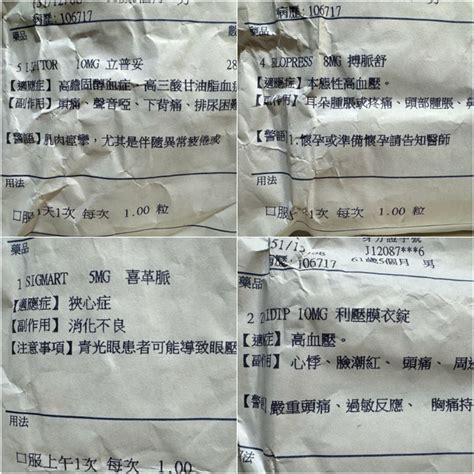 病歷：106717
藥品
5 LIPITOR 10MG 立普妥 28
【適應症】高膽固醇血症、高三酸甘油脂血症
【副作用】頭痛、聲音啞、下背痛、排尿困難
【警語】肌肉痙攣，尤其是伴隨異常疲倦或
用法
口服1天1次 每次 1.00 粒
病歷：106717
藥品
4 BLOPRESS 8MG 博脈舒
【適應症】本態性高血壓。
【副作用】耳朵腫脹或疼痛、頭部腫脹、
【警語】1.懷孕或準備懷孕請告知醫師
用法
口服1天1次 每次 1.00 粒
藥品
1 SIGMART 5MG 喜革脈
【適應症】狹心症
【副作用】消化不良
【注意事項】青光眼患者可能導致眼壓
用法
口服上午1次 每次 1.00
身分證字號
J12087***6
106717 61歲5個月 男
藥品
2 ZIDIP 10MG 利壓膜衣錠
【適應症】高血壓。
【副作用】心悸、臉潮紅、頭痛、周
【警語】嚴重頭痛、過敏反應、胸痛持
用法